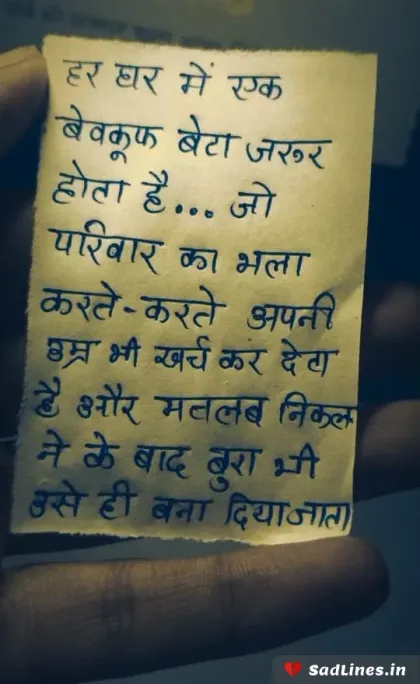 हर घर में एक
बेवकूफ बेटा जरुर
होता है... जो
परिवार का भला
करते-करते अपनी
उम्र भी खर्च कर देता
है और मतलब निकल
ने के बाद बुरा भी
उसे ही बना दिया जाता
SadLines.in